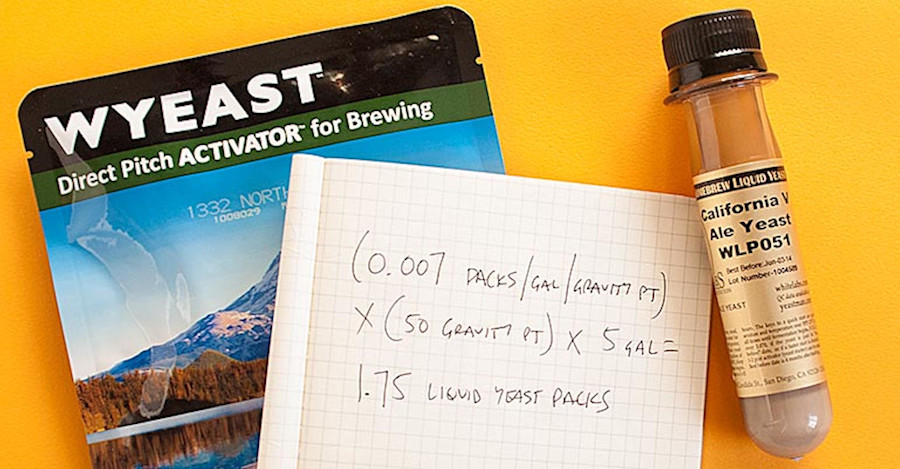 WYEAST
Direct Pitch ACTIVATOR™ for Brewing
1332 NORTH
1008029
(0.007 PACKS/GAL/GRAVITY PT)
X (50 GRAVITY PT) X 5 GAL =
1.75 LIQUID YEAST PACKS
HOMEBREW LIQUID YEAST
California V
Ale Yeast
WLP051
Best Before: Jun-03-14
Lot Number-1004589
whitelabs.com
San Diego, CA